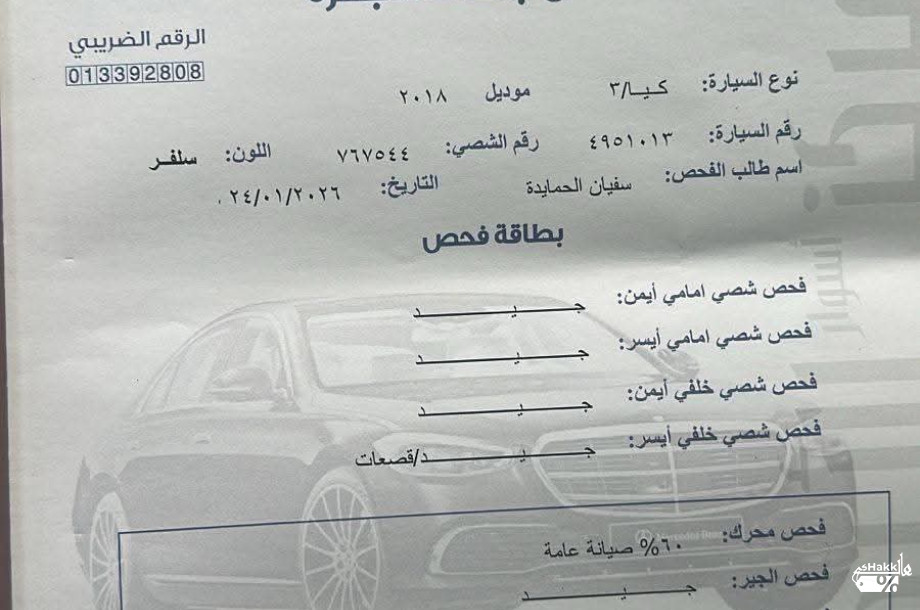 الرقم الضريبي
013392808
نوع السيارة: كيا/٣ موديل ٢٠١٨
رقم السيارة: ٤٩٥١٠١٣ رقم الشصي: ٧٦٧٥٤٤ اللون: سلفر
اسم طالب الفحص: سفيان الحمايدة التاريخ: ٢٤/٠١/٢٠٢٦
بطاقة فحص
فحص شصي امامي أيمن: جيد
فحص شصي امامي أيسر: جيد
فحص شصي خلفي أيمن: جيد
فحص شصي خلفي أيسر: جيد/قصعات
فحص محرك: ٦٠% صيانة عامة
فحص الجير: جيد